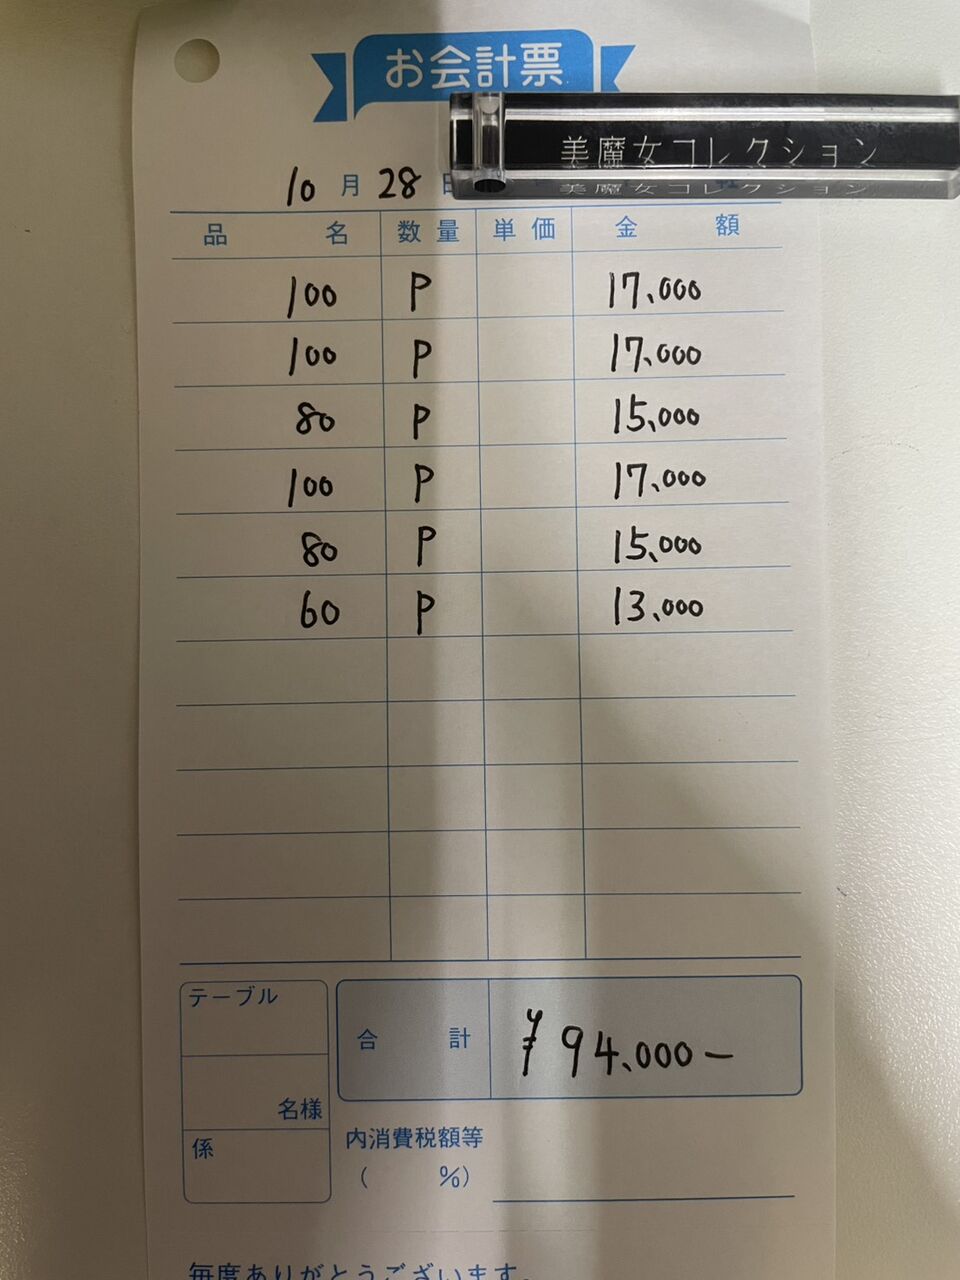 お会計票
美魔女コレクション
美魔女コレクション
10月28日
品名 数量 単価 金額
100 P 17,000
100 P 17,000
80 P 15,000
100 P 17,000
80 P 15,000
60 P 13,000
テーブル
合計 ¥94,000-
名様
係
内消費税額等
( %)
毎度ありがとうございます。